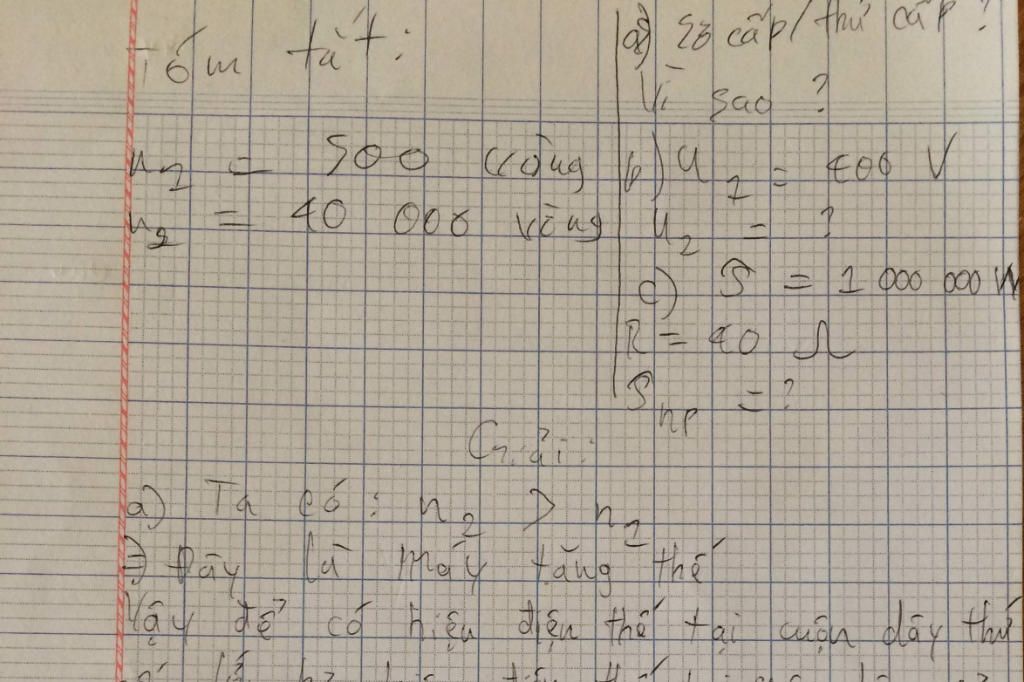 Tóm tắt:
n₁ = 500 vòng
n₂ = 40 000 vòng
a) Sơ cấp/thứ cấp?
Vì sao?
b) U₁ = 400 V
U₂ = ?
c) P = 1 000 000 W
R = 40 Ω
P hp = ?
Giải:
a) Ta có: n₂ > n₁
=) Đây là máy tăng thế
Vậy để có hiệu điện thế tại cuộn dây thứ